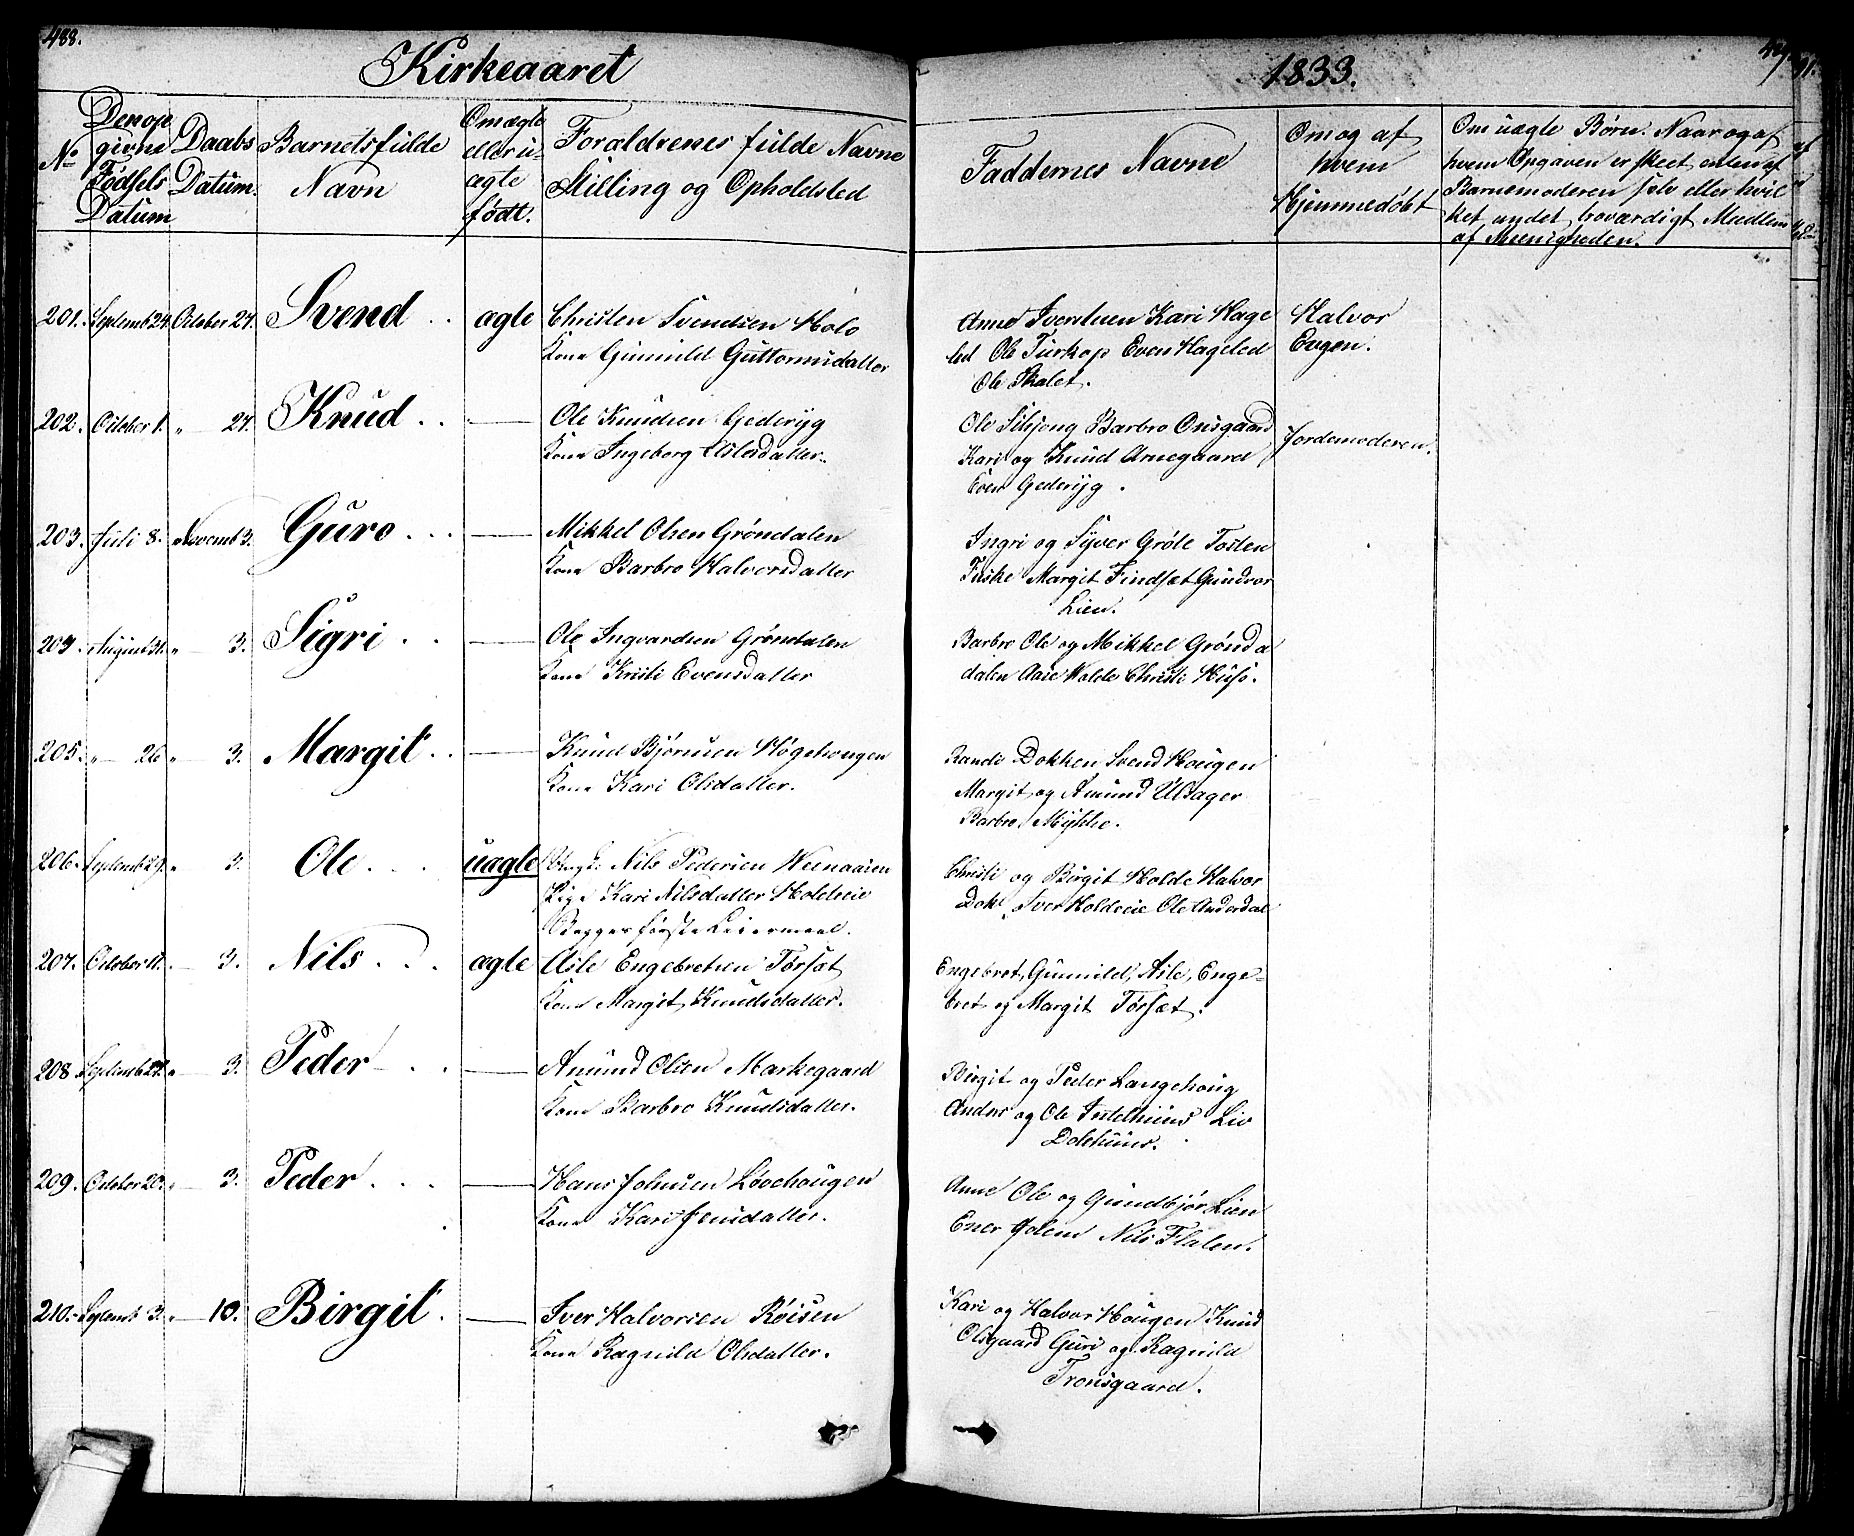 488.
Kirkeaaret
1833.
No
Den opgivne Fødsels Datum
Daabs Datum.
Barnets fulde Navn
Om ægte eller uægte født.
Forældrenes fulde Navne Stilling og Opholdsted
Faddernes Navne
Om og af hvem Hjemmedøbt
Om uægte Børn. Naar og af
hvem Opgaven er skeet, enten af
Barnemoderen selv eller hvil
ket andet troværdigt Medlem
af Menigheden.
201. Septemb 24. October 27. Svend . . ægte Christen Svendsen Holo
Kone Gunnild Guttormsdatter
Anne Iversluen Kari Hage
led Ole Turkop Even Hageled
Ole Skalet.
Halvor
Evgen.
202. October 1. " — 27. Knud . . — Ole Knudsen Gederyg
Kone Ingeborg Asledatter.
Ole Silsjong Barbro Onsgaard
Kari og Knud Arnegaard
Even Gederyg .
Jordemoderen.
203. Juli 8. Novemb 3. Guro . . . — Mikkel Olsen Grøndalen
Kone Barbro Halvorsdatter
Ingri og Syver Grøte Tosten
Fiske Margit Findsæt Gundvor
Lien.
204. August 31. " — 3. Sigri . . — Ole Ingvardsen Grøndalen
Kone Kristi Evensdatter
Barbro Ole og Mikkel Grønda
dalen Aase Holde Christi Huso.
205. " — 26 " — 3. Margit . . — Knud Bjørnsen Høgehougen
Kone Kari Olsdatter.
Randi Dokken Svend Hougen
Margit og Amund Ulsager
Barbro Mykke.
206. Septemb 29. " 3. Ole . . . uægte Ungk: Nils Pedersen
Pige Kari Nilsdatter Holdeeie
Begges første Leiermaal.
Christi og Birgit Holde Halvor
Dok Iver Holdeeie Ole Andersdal
207. October 11. — 3. Nils . . . ægte Asle Engebretsen Torsæt
Kone Margit Knudsdatter.
Engebret, Gunnild, Asle, Enge-
bret og Margit Torsæt.
208. Septemb 27. " — 3. Peder . . — Amund Olsen Markegaard
Kone Barbro Knudsdatter.
Birgit og Peder Langehoug
Anders og Ole Liv
Dolehuus.
209. October 20. " — 3. Peder . . . — Hans Johnsen Løvehougen
Kone Kari Jensdatter.
Anne Ole og Gundbjør Lien
Ener Golem Nils Flaten.
210. Septemb 3. " — 10. Birgit . — Iver Halvorsen Røisen
Kone Ragnild Olsdatter.
Kari og Halvor Hougen Knud
Olsgaard Guri og Ragnild
Tronsgaard.